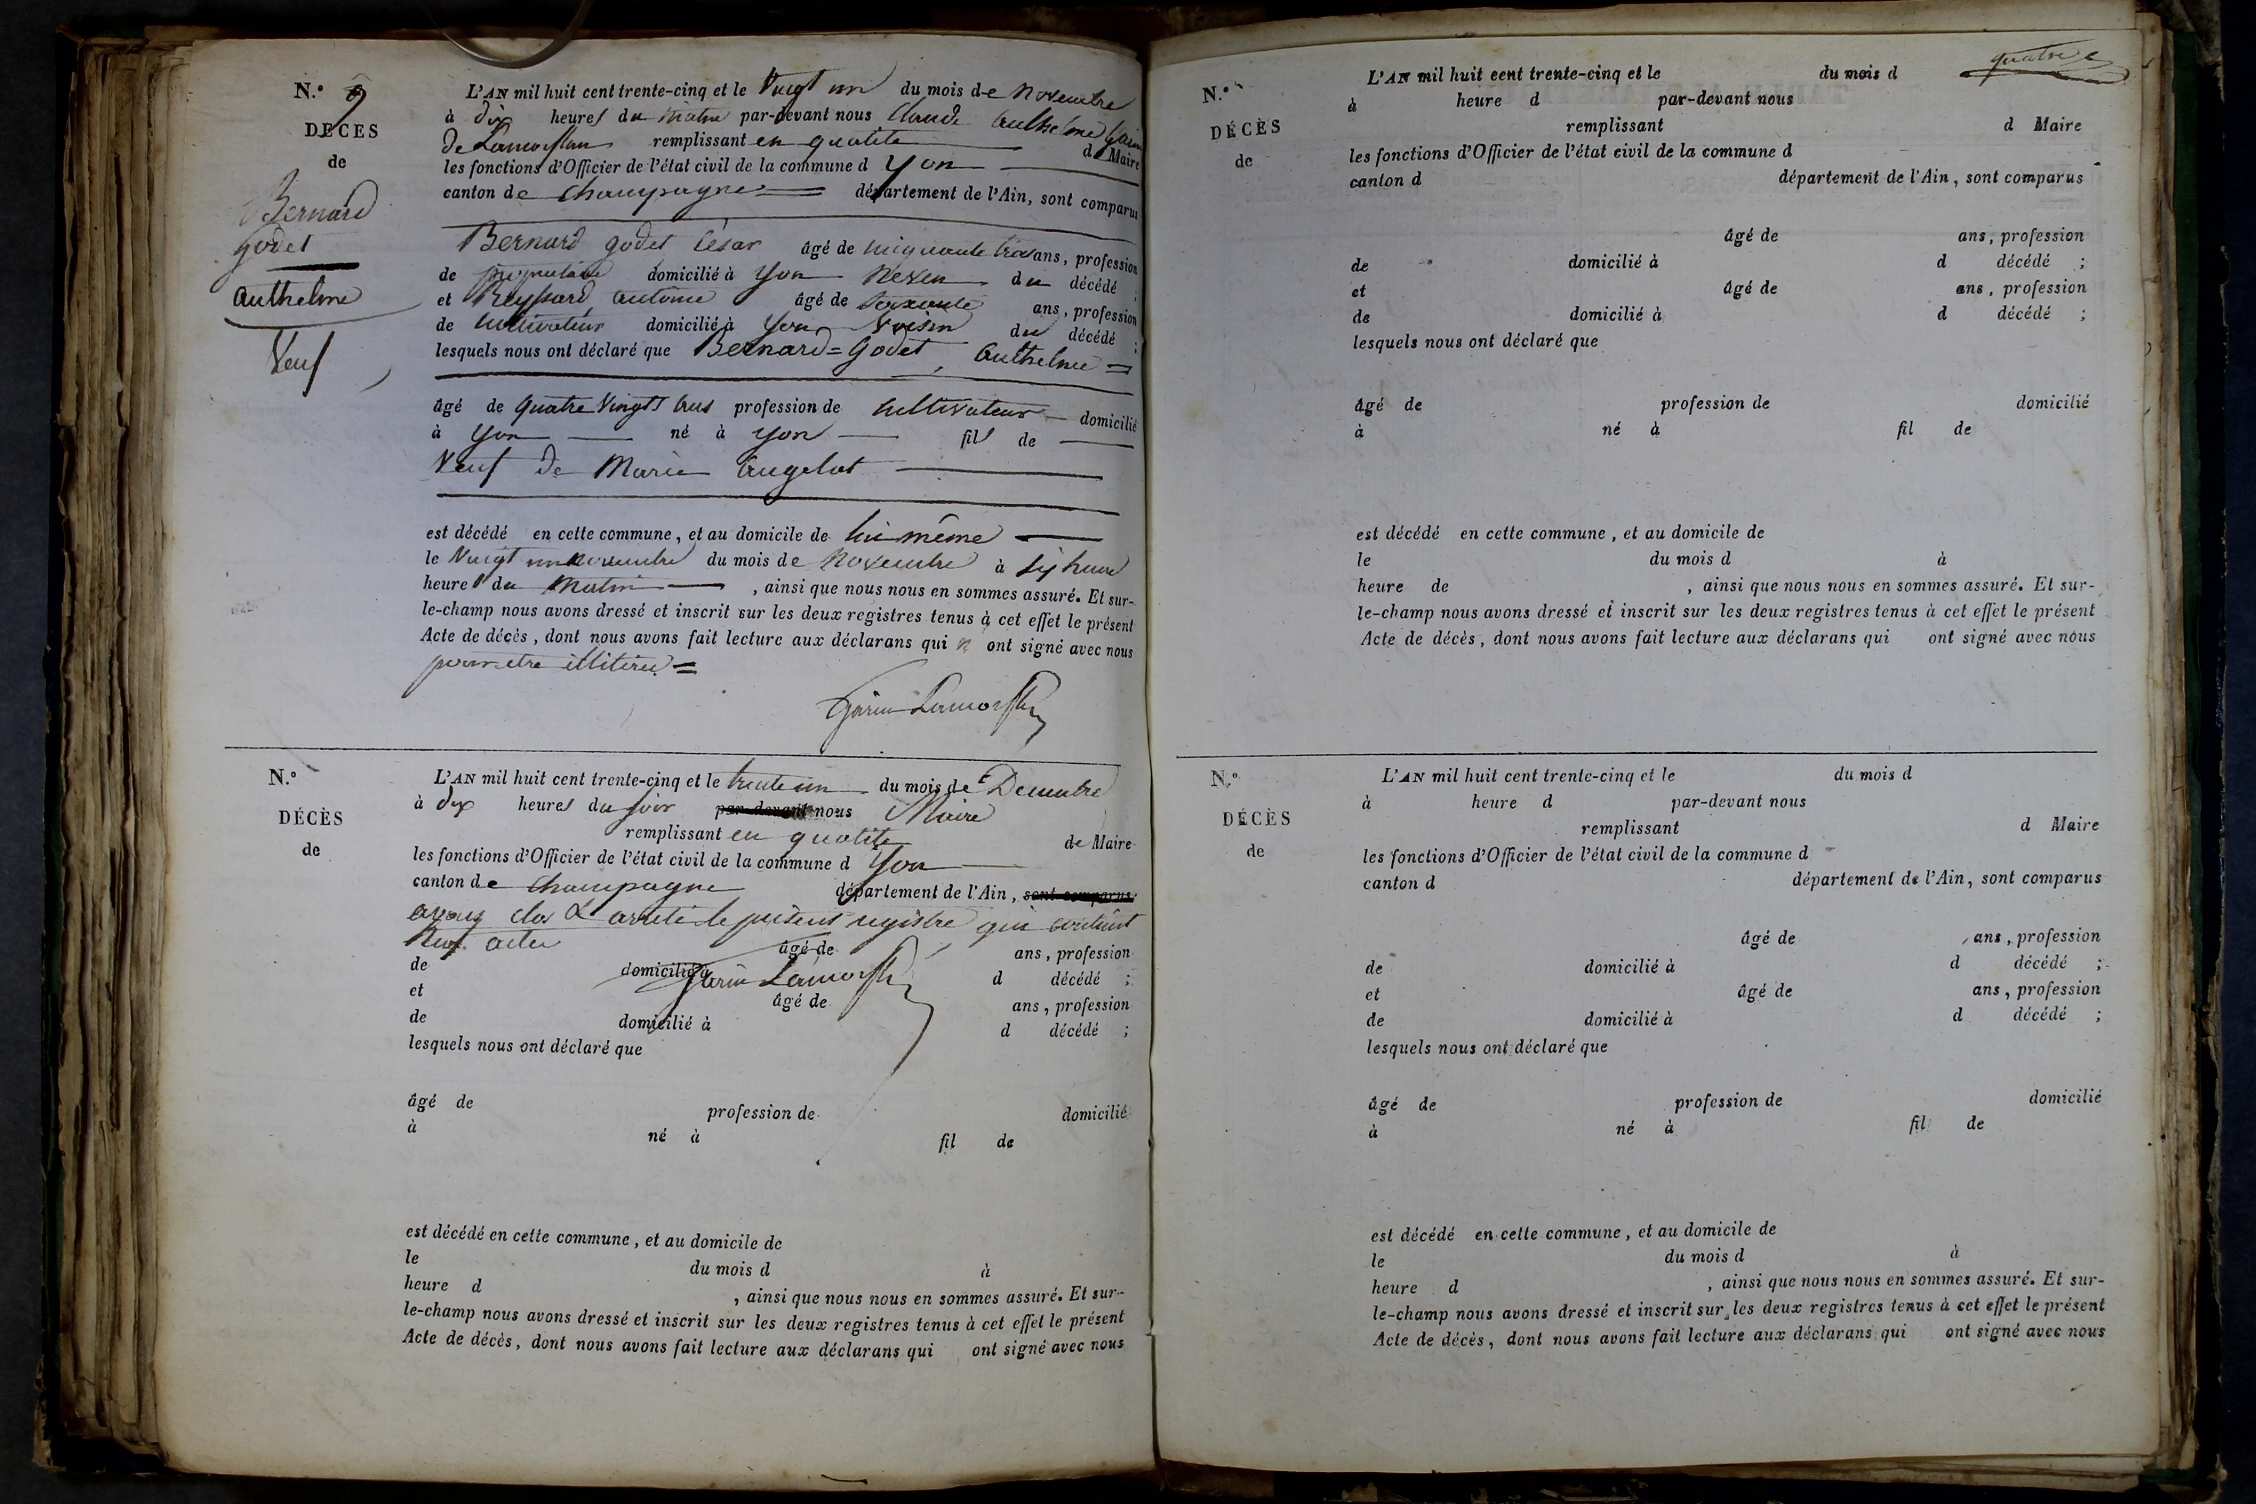 N.° 9
DÉCÈS
de
Bernard
godet
authelme
Veuf
L'AN mil huit cent trente-cinq et le Vingt un du mois de novembre
à dix heures du matin par-devant nous Claude Authelme Garin
de Lamorflan remplissant en qualité de Maire
les fonctions d'Officier de l'état civil de la commune d yon
canton de Champagne département de l'Ain, sont comparus
Bernard godet César âgé de cinquante trois ans, profession
de propriétaire domicilié à yon neveu du décédé ;
et Reyssard antoine âgé de soixante ans, profession
de cultivateur domicilié à yon voisin du décédé ;
lesquels nous ont déclaré que Bernard=Godet, Authelme =
âgé de quatre Vingts trois profession de cultivateur domicilié
à yon né à yon fils de
Veuf de Marie Augelot
est décédé en cette commune, et au domicile de lui même
le Vingt un novembre du mois de novembre à six heure
heures du matin, ainsi que nous nous en sommes assuré. Et sur-
le-champ nous avons dressé et inscrit sur les deux registres tenus à cet effet le présent
Acte de décès, dont nous avons fait lecture aux déclarans qui n ont signé avec nous
pour être illitéré =
Garin Lamorflan
N.°
DÉCÈS
de
L'AN mil huit cent trente-cinq et le trente un du mois de Décembre
à dix heures du soir par-devant nous Maire
remplissant en qualité de Maire
les fonctions d'Officier de l'état civil de la commune d yon
canton de Champagne département de l'Ain, sont comparus
avons clos & arrêté le présent registre qui contient
neuf actes âgé de ans, profession
de domicilié à d décédé ;
Garin Lamorflan
et âgé de ans, profession
de domicilié à d décédé ;
lesquels nous ont déclaré que
âgé de profession de domicilié
à né à fil de
est décédé en cette commune, et au domicile de
le du mois d à
heure d , ainsi que nous nous en sommes assuré. Et sur-
le-champ nous avons dressé et inscrit sur les deux registres tenus à cet effet le présent
Acte de décès, dont nous avons fait lecture aux déclarans qui ont signé avec nous
quatre
N.°
DÉCÈS
de
L'AN mil huit cent trente-cinq et le du mois d
à heure d par-devant nous
remplissant d Maire
les fonctions d'Officier de l'état civil de la commune d
canton d département de l'Ain, sont comparus
âgé de ans, profession
de domicilié à d décédé ;
et âgé de ans, profession
de domicilié à d décédé ;
lesquels nous ont déclaré que
âgé de profession de domicilié
à né à fil de
est décédé en cette commune, et au domicile de
le du mois d à
heure de , ainsi que nous nous en sommes assuré. Et sur-
le-champ nous avons dressé et inscrit sur les deux registres tenus à cet effet le présent
Acte de décès, dont nous avons fait lecture aux déclarans qui ont signé avec nous
N.°
DÉCÈS
de
L'AN mil huit cent trente-cinq et le du mois d
à heure d par-devant nous
remplissant d Maire
les fonctions d'Officier de l'état civil de la commune d
canton d département de l'Ain, sont comparus
âgé de ans, profession
de domicilié à d décédé ;
et âgé de ans, profession
de domicilié à d décédé ;
lesquels nous ont déclaré que
âgé de profession de domicilié
à né à fil de
est décédé en cette commune, et au domicile de
le du mois d à
heure d , ainsi que nous nous en sommes assuré. Et sur-
le-champ nous avons dressé et inscrit sur les deux registres tenus à cet effet le présent
Acte de décès, dont nous avons fait lecture aux déclarans qui ont signé avec nous